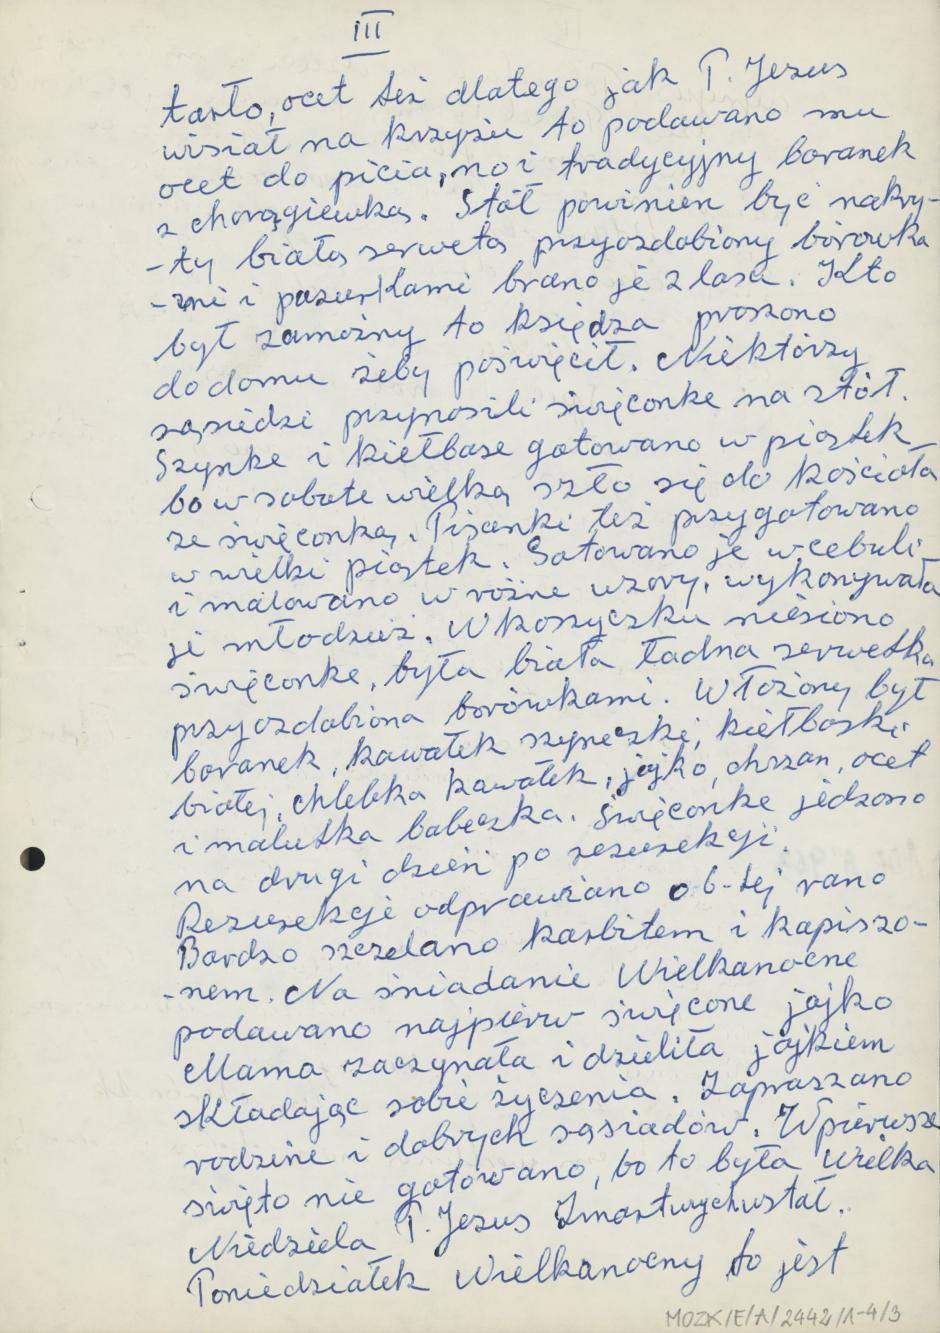 III
tarło, ocet też dlatego jak P. Jezus
wisiał na krzyżu to podawano mu
ocet do picia, no i tradycyjny baranek
z chorągiewką. Stół powinien być nakry-
-ty białą serwetą przyozdobiony borówka
-mi i pazurkami brano je z lasu. Kto
był zamożny to księdza proszono
do domu żeby poświęcił. Niektórzy
sąsiedzi przynosili święconke na stół.
Szynke i kiełbase gotowano w piątek
bo w sobote wielką szło się do kościoła
ze święconką. Pisanki też przygotowano
w wielki piątek. Gotowano je w cebuli
i malowano w różne wzory, wykonywała
je młodzież. W koszyczku niesiono
święconke, była biała ładna serwetka
przyozdobiona borówkami. Włożony był
baranek, kawałek szyneczki, kiełbaski
białej, chlebka kawałek, jajko, chrzan, ocet
i malutka babeczka. Święconke jedzono
na drugi dzień po rezurekcji.
Rezurekcje odprawiano o 6-tej rano
Bardzo szczelano karbitem i kapiszo-
-nem. Na śniadanie Wielkanocne
podawano najpierw święcone jajko
Mama zaczynała i dzieliła jajkiem
składając sobie życzenia. Zapraszano
rodzine i dobrych sąsiadów. W pierwsze
święto nie gotowano, bo to była Wielka
Niedziela P. Jezus Zmartwychwstał.
Poniedziałek Wielkanocny to jest
MOZK/E/A/2442/1-4/3